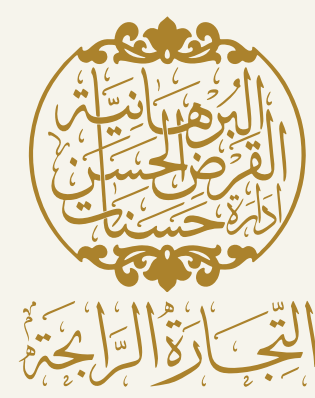 البُرهَانِيَّة
القَرْضُ الحَسَن
اِدَارَة حَسَنَات
التِّجَارَةُ الرَّابِحَة